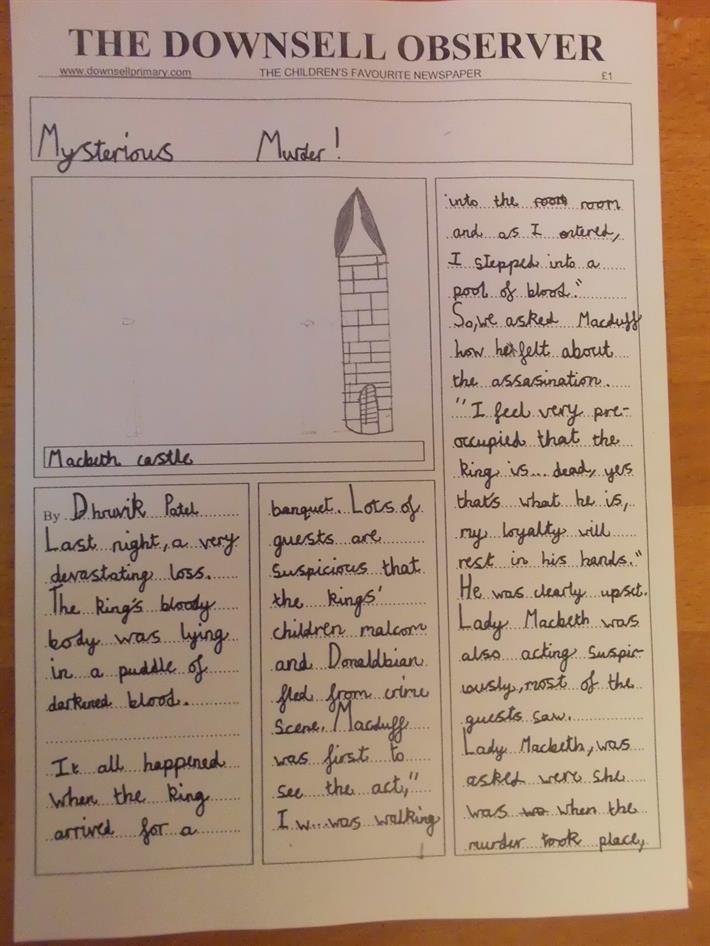 THE DOWNSELL OBSERVER
www.downsellprimary.com THE CHILDREN'S FAVOURITE NEWSPAPER £1
Mysterious Murder!
Macbeth castle
By Dhruvik Patel
Last night, a very
devastating loss.
The king's bloody
body was lying
in a puddle of
darkened blood.
It all happened
when the king
arrived for a
banquet. Lots of
guests are
suspicious that
the kings'
children malcom
and Donaldbian
fled from crime
scene. Macduff
was first to
see the act,"
I w... was walking
into the room room
and as I entered,
I stepped into a
pool of blood."
So, we asked Macduff
how he felt about
the assasination.
"I feel very pre-
occupied that the
king is... dead, yes
that's what he is,
my loyalty will
rest in his hands."
He was clearly upset.
Lady Macbeth was
also acting suspic-
iously, most of the
guests saw.
Lady Macbeth, was
asked were she
was wo when the
murder took place,